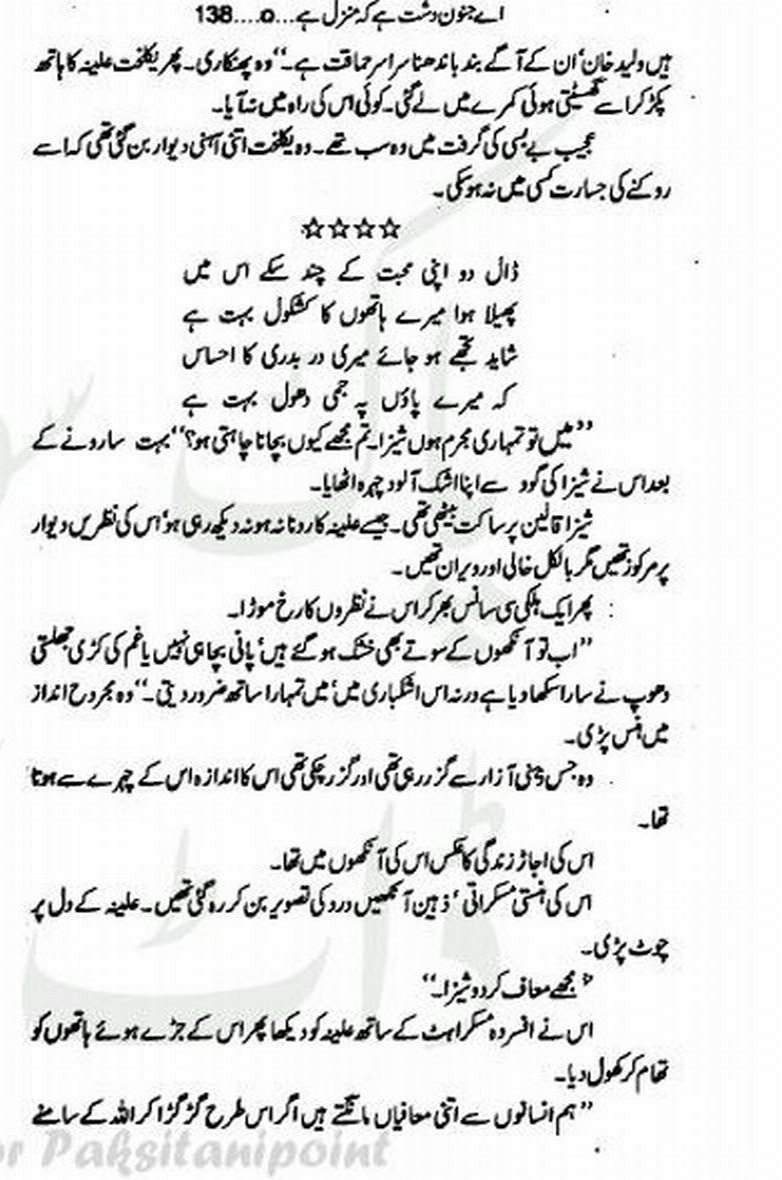 اے جنون دشت ہے کہ منزل ہے....o....138
ہیں ولید خان‘ ان کے آگے بند باندھنا سراسر حماقت ہے۔“ وہ پھنکاری۔ پھر یکلخت علینہ کا ہاتھ
پکڑ کر اسے گھسیٹتی ہوئی کمرے میں لے گئی۔ کوئی اس کی راہ میں نہ آیا۔
عجیب بے بسی کی گرفت میں وہ سب تھے۔ وہ یکلخت اتنی آہنی دیوار بن گئی تھی کہ اسے
روکنے کی جسارت کسی میں نہ ہو سکی۔
☆☆☆☆
ڈال دو اپنی محبت کے چند سکے اس میں
پھیلا ہوا میرے ہاتھوں کا کشکول بہت ہے
شاید تجھے ہو جائے میری در بدری کا احساس
کہ میرے پاؤں پہ جمی دھول بہت ہے
”میں تو تمہاری مجرم ہوں شیزا۔ تم مجھے کیوں بچانا چاہتی ہو؟“ بہت سارونے کے
بعد اس نے شیزا کی گود سے اپنا اشک آلود چہرہ اٹھایا۔
شیزا قالین پر ساکت بیٹھی تھی۔ جیسے علینہ کا رونا نہ ہو نہ دیکھ رہی ہو‘ اس کی نظریں دیوار
پر مرکوز تھیں مگر بالکل خالی اور ویران تھیں۔
پھر ایک ہلکی سی سانس بھر کر اس نے نظروں کا رخ موڑا۔
”اب تو آنکھوں کے سوتے بھی خشک ہو گئے ہیں‘ پانی بچا ہی نہیں یا غم کی کڑی جھلستی
دھوپ نے سارا سکھا دیا ہے ورنہ اس اشکباری میں‘ میں تمہارا ساتھ ضرور دیتی۔“ وہ مجروح انداز
میں ہنس پڑی۔
وہ جس ذہنی آزار سے گزر رہی تھی اور گزر چکی تھی اس کا اندازہ اس کے چہرے سے ہوتا
تھا۔
اس کی اجاڑ زندگی کا عکس اس کی آنکھوں میں تھا۔
اس کی ہنستی مسکراتی‘ ذہین آنکھیں درد کی تصویر بن کر رہ گئی تھیں۔ علینہ کے دل پر
چوٹ پڑی۔
”مجھے معاف کر دو شیزا۔“
اس نے افسردہ مسکراہٹ کے ساتھ علینہ کو دیکھا پھر اس کے جڑے ہوئے ہاتھوں کو
تھام کر کھول دیا۔
”ہم انسانوں سے اتنی معافیاں مانگتے ہیں اگر اس طرح گڑگڑا کر اللہ کے سامنے
or Paksitanipoint